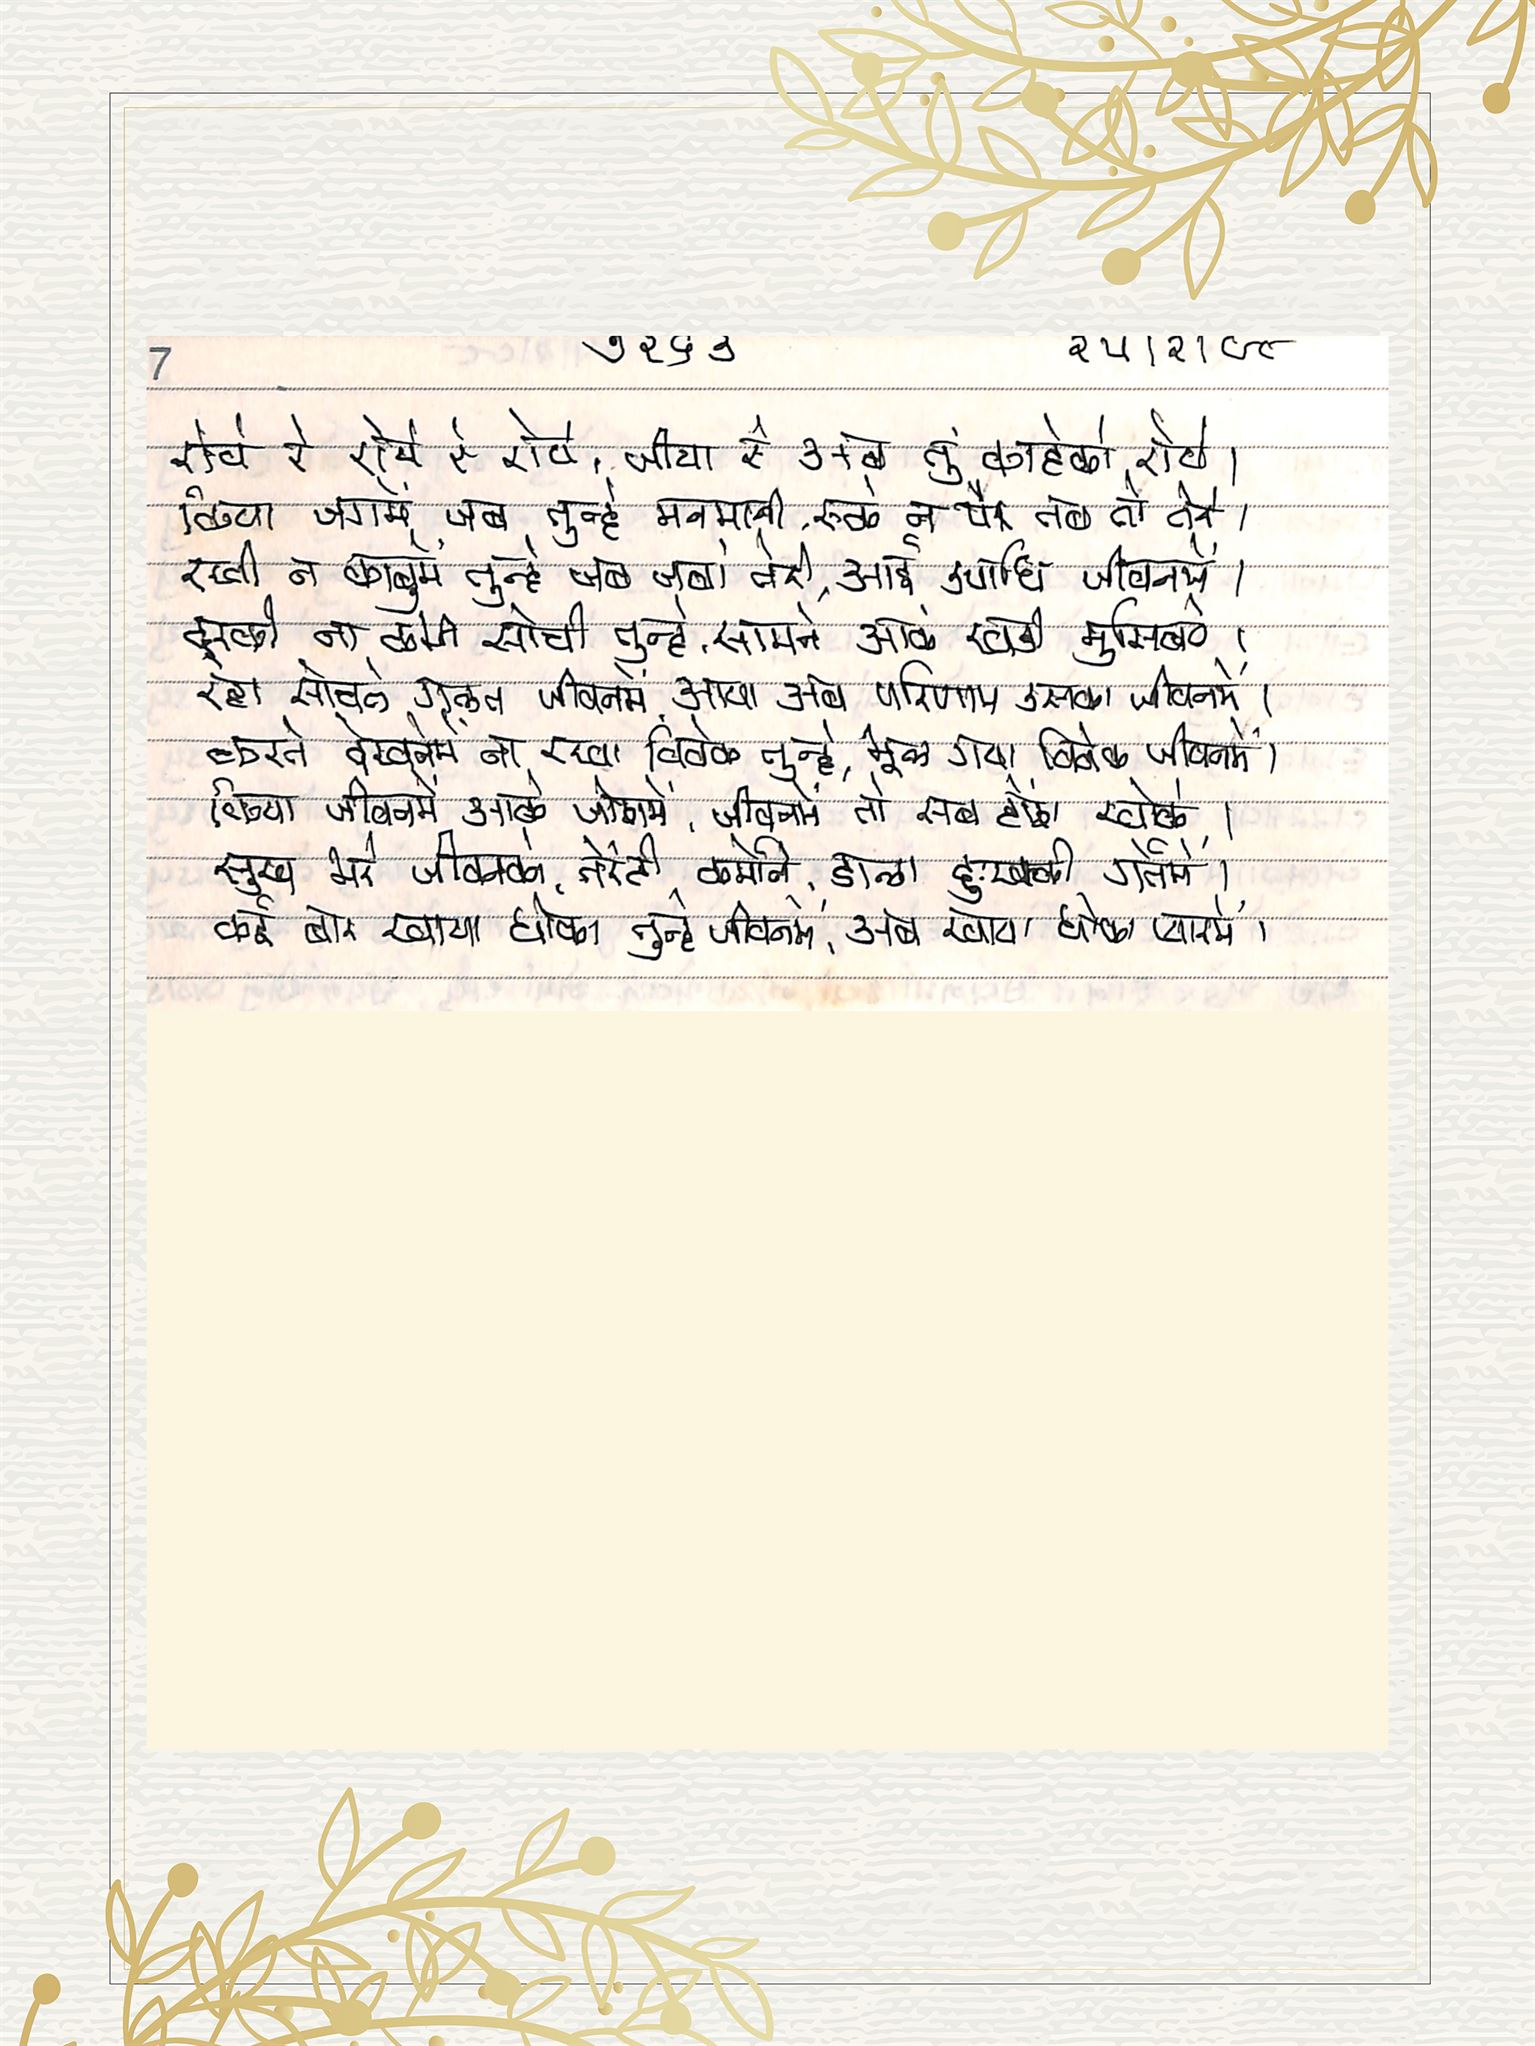 7 ७२६३ २५/२/९८
रोये रे रोये रे रोये, जीया रे अब तुं काहेको रोये।
किया जगमें जब तुन्हे मनमानी, रुके न पैर तब तो तेरे।
रखी न काबुमें तुन्हे जब जबां तेरी, आई उपाधि जीवनमें।
दूरकी ना कभी सोची तुन्हे, सामने आके खडी मुसिबते।
रहा सोचते गलत जीवनमें, आया अब परिणाम उसका जीवनमें।
करते देखनेमें ना रखा विवेक तुन्हे, भूल गया विवेक जीवनमें।
किया जीवनमें आके जोशमें, जीवनमें तो सब होंश खोके।
सुख भरे जीवनको, तेरेही कर्मोने, डाला दुःखकी गर्तमें।
कई बार खाया धोका तुन्हे जीवनमें, अब खाया धोका प्यारमें।